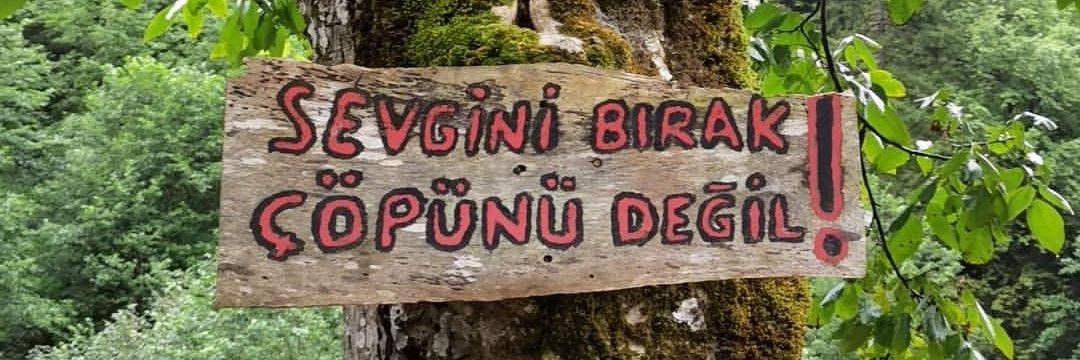 SEVGİNİ BIRAK
ÇÖPÜNÜ DEĞİL!